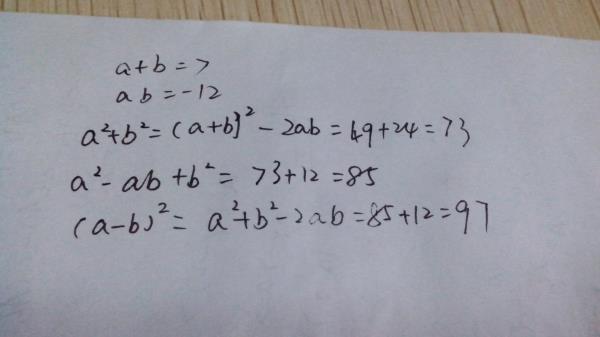 a+b=7
ab=-12
a²+b²=(a+b)²-2ab=49+24=73
a²-ab+b²=73+12=85
(a-b)²=a²+b²-2ab=85+12=97